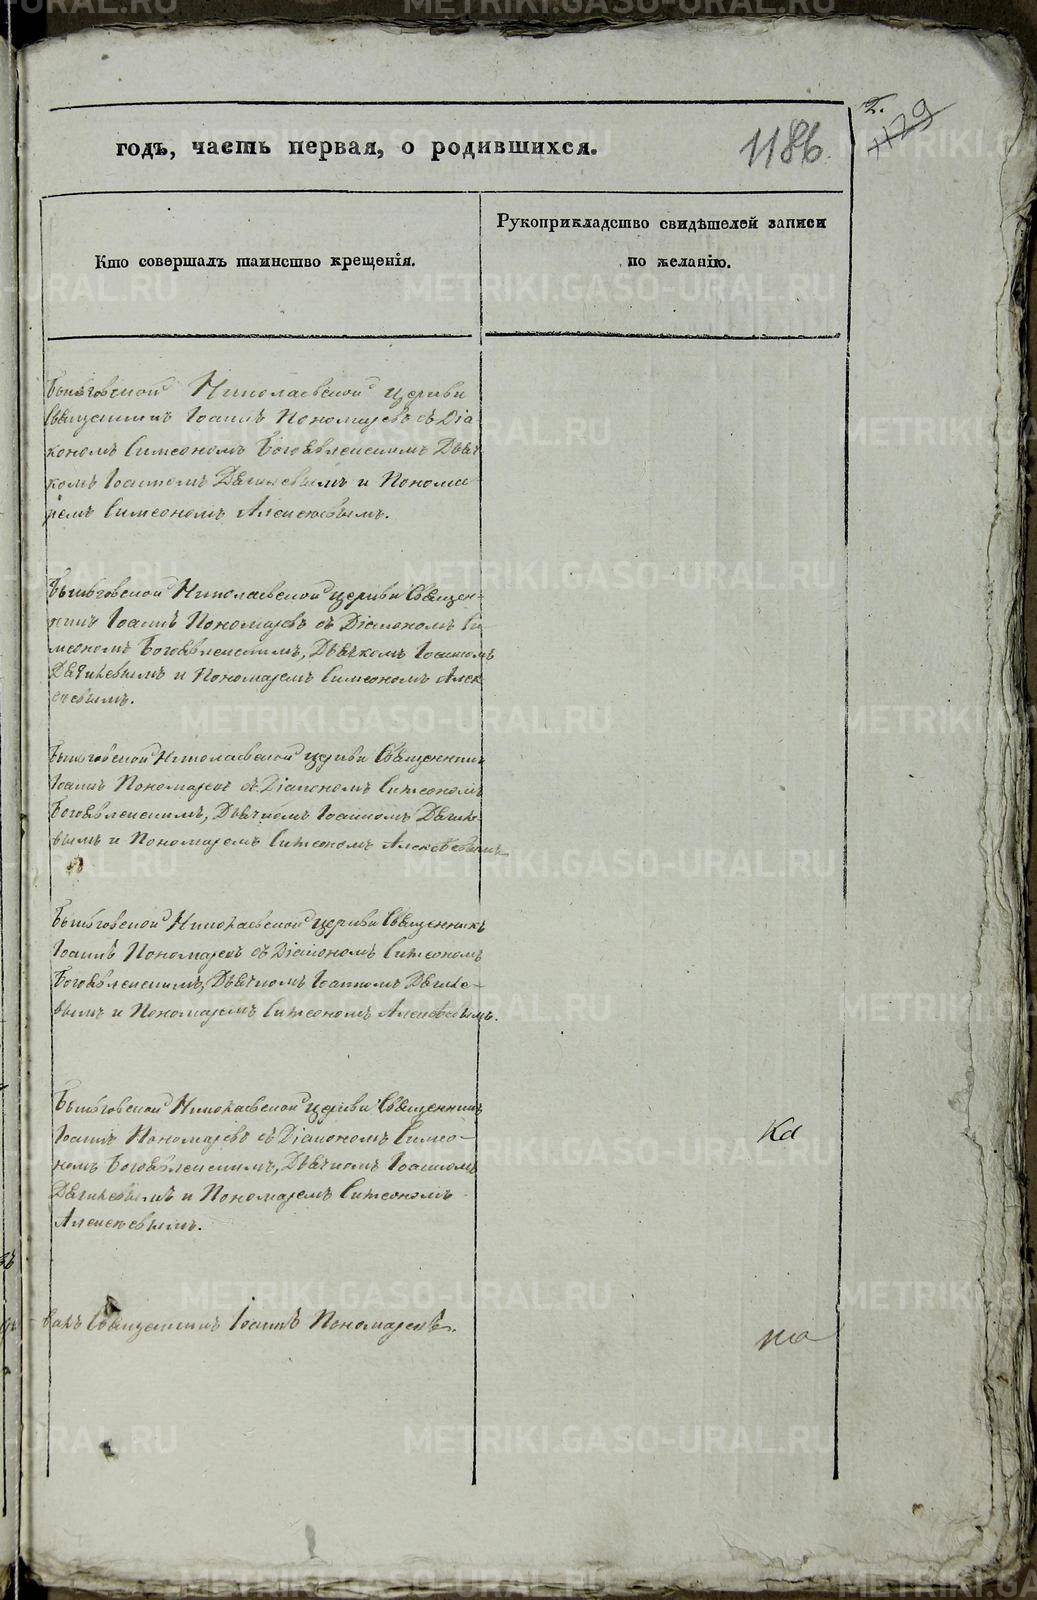 2.
1179
годъ, часть первая, о родившихся.
1186.
Кто совершалъ таинство крещенія.
Рукоприкладство свидѣтелей записи
по желанію.
Быньговской Николаевской церкви
Священникъ Іоаннъ Пономаревъ съ Діа
кономъ Симеономъ Богоявленскимъ Дьяч
комъ Іоанномъ Дягилевымъ и Понома
ремъ Симеономъ Алексѣевымъ.
Быньговской Николаевской церкви Священ-
никъ Іоаннъ Пономаревъ съ Діакономъ Си
меономъ Богоявленскимъ, Дьячкомъ Іоанномъ
Дягилевымъ и Пономаремъ Симеономъ Алек
сѣевымъ.
Быньговской Николаевской церкви Священникъ
Іоаннъ Пономаревъ съ Діакономъ Симеономъ
Богоявленскимъ, Дьячкомъ Іоанномъ Дягиле
вымъ и Пономаремъ Симеономъ Алексѣевымъ
Быньговской Николаевской церкви Священникъ
Іоаннъ Пономаревъ съ Діакономъ Симеономъ
Богоявленскимъ, Дьячкомъ Іоанномъ Дягиле-
вымъ и Пономаремъ Симеономъ Алексѣевымъ.
Быньговской Николаевской церкви Священникъ
Іоаннъ Пономаревъ съ Діакономъ Симео-
номъ Богоявленскимъ, Дьячкомъ Іоанномъ
Дягилевымъ и Пономаремъ Симеономъ
Алексѣевымъ.
Ка
Священникъ Іоаннъ Пономаревъ.
METRIKI.GASO-URAL.RU